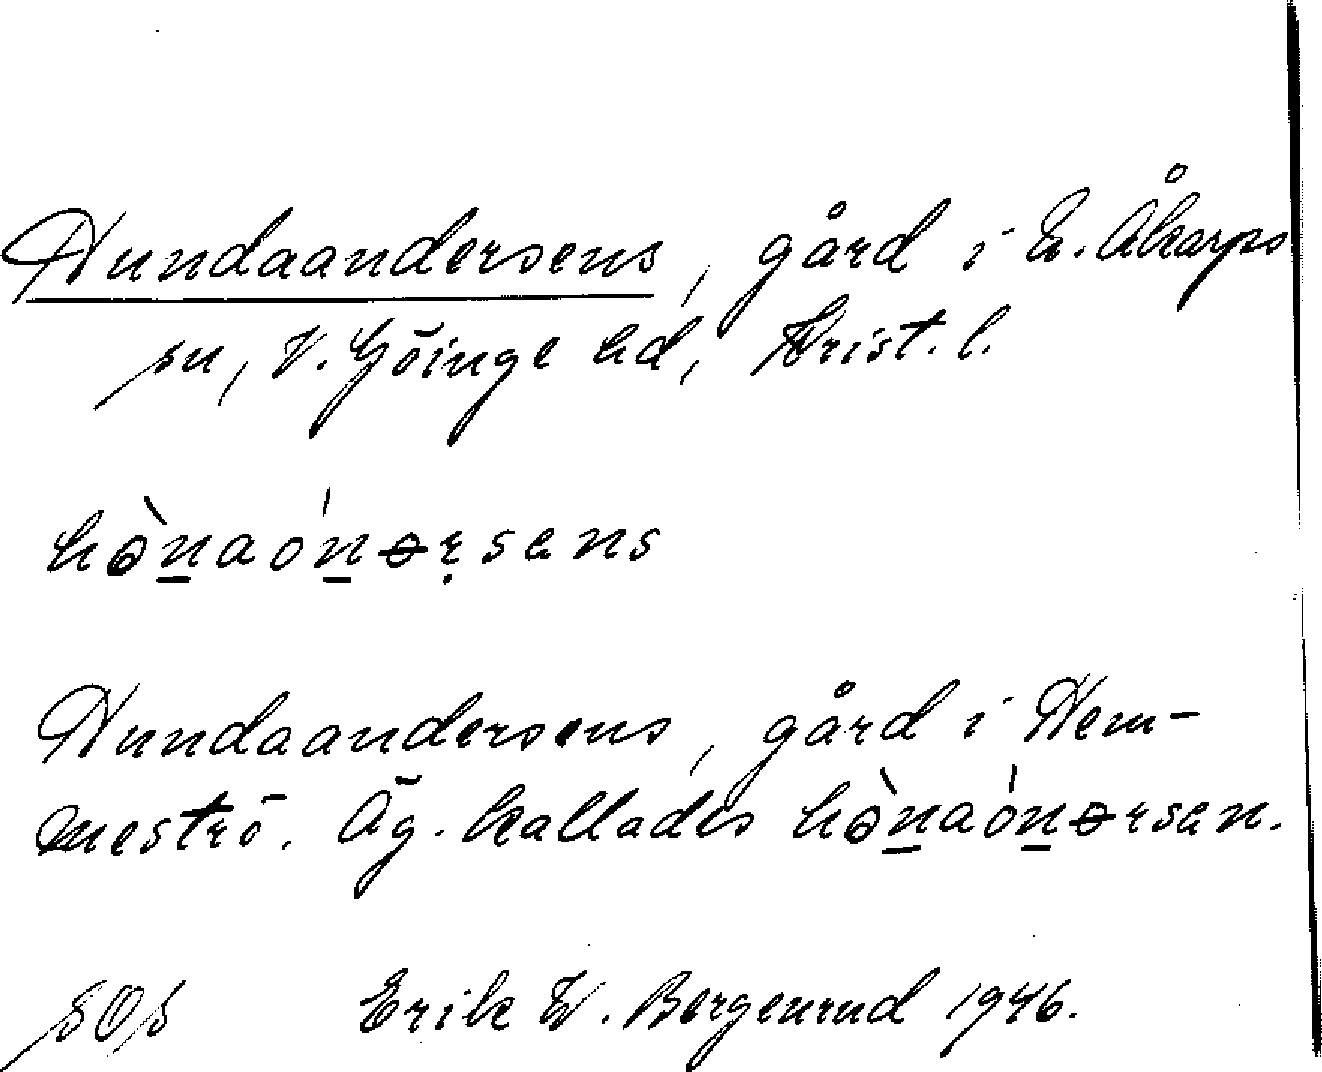 Hundaandersens, gård i N. Åkarps
sn, V. Göinge hd, Krist. l.
hònaónərsens
Hundaandersens, gård i Hem-
meströ. Äg. kallades hònaónərsen.
SOS Erik W. Bergenrud 1946.